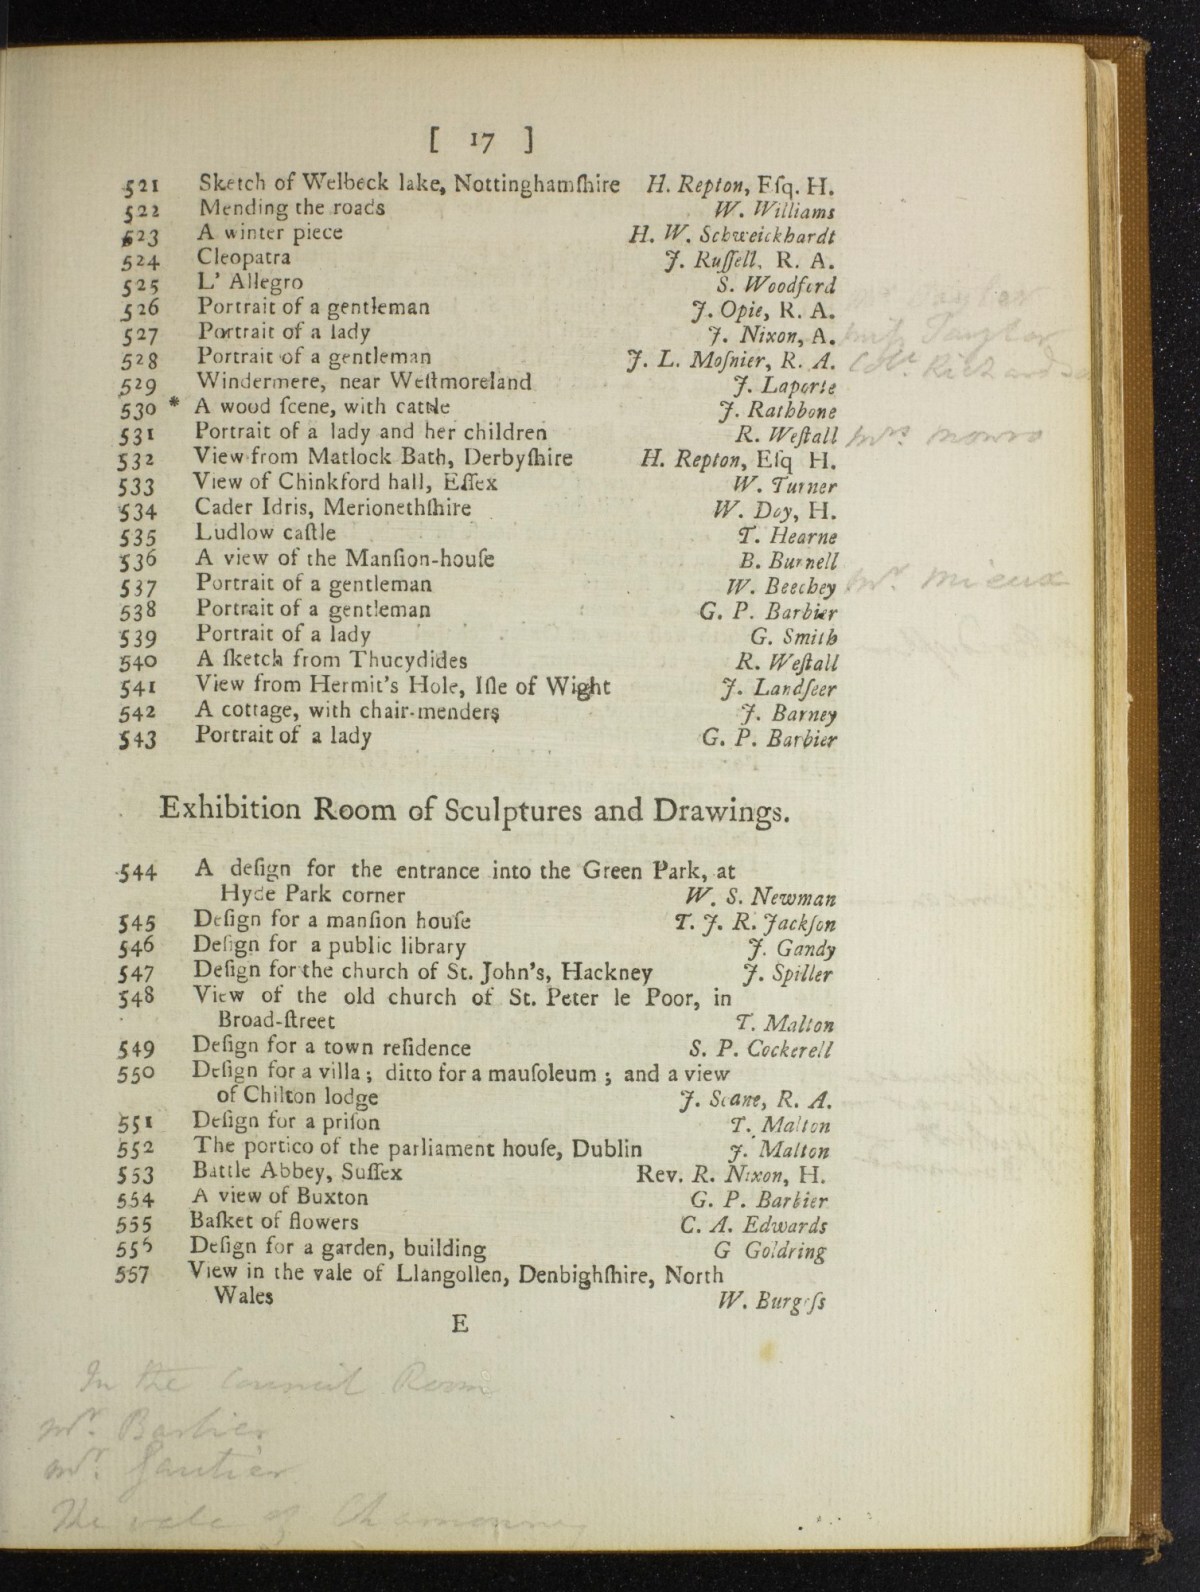 [ 17 ]
521 Sketch of Welbeck lake, Nottinghamſhire H. Repton, Eſq. H.
522 Mending the roads W. Williams
523 A winter piece H. W. Schweickhardt
524 Cleopatra J. Ruſſell, R. A.
525 L' Allegro S. Woodford
526 Portrait of a gentleman J. Opie, R. A. Taylor
527 Portrait of a lady J. Nixon, A. Miſs Taylor
528 Portrait of a gentleman J. L. Moſnier, R. A. Richardson
529 Windermere, near Weſtmoreland J. Laporte
530 * A wood ſcene, with cattle J. Rathbone
531 Portrait of a lady and her children R. Weſtall Mrs Monro
532 View from Matlock Bath, Derbyſhire H. Repton, Eſq H.
533 View of Chinkford hall, Eſſex W. Turner
534 Cader Idris, Merionethſhire W. Day, H.
535 Ludlow caſtle T. Hearne
536 A view of the Manſion-houſe B. Burnell
537 Portrait of a gentleman W. Beechey Mr Mieux
538 Portrait of a gentleman G. P. Barbier
539 Portrait of a lady G. Smith
540 A ſketch from Thucydides R. Weſtall
541 View from Hermit's Hole, Iſle of Wight J. Landſeer
542 A cottage, with chair-menders J. Barney
543 Portrait of a lady G. P. Barbier
Exhibition Room of Sculptures and Drawings.
544 A deſign for the entrance into the Green Park, at
Hyde Park corner W. S. Newman
545 Deſign for a manſion houſe T. J. R. Jackſon
546 Deſign for a public library J. Gandy
547 Deſign for the church of St. John's, Hackney J. Spiller
548 View of the old church of St. Peter le Poor, in
Broad-ſtreet T. Malton
549 Deſign for a town reſidence S. P. Cockerell
550 Deſign for a villa; ditto for a mauſoleum; and a view
of Chilton lodge J. Soane, R. A.
551 Deſign for a priſon T. Malton
552 The portico of the parliament houſe, Dublin J. Malton
553 Battle Abbey, Suſſex Rev. R. Nixon, H.
554 A view of Buxton G. P. Barbier
555 Baſket of flowers C. A. Edwards
556 Deſign for a garden, building G Goldring
557 View in the vale of Llangollen, Denbighſhire, North
Wales W. Burgeſs
E
In the Council Room
Mr. Barbier
Mr. Gautier
The vale of